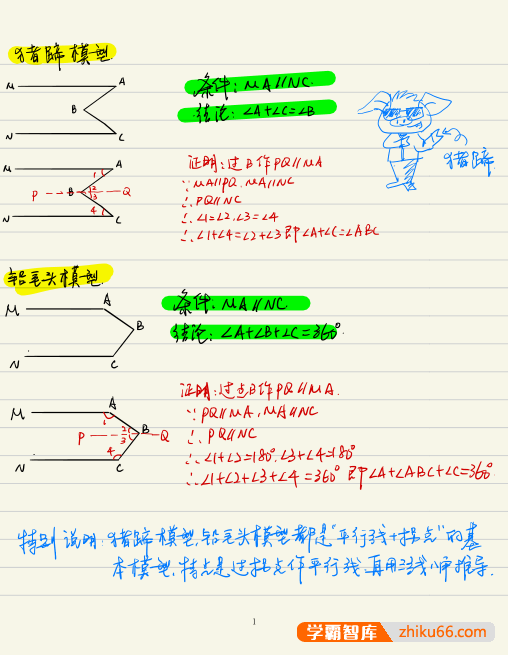 猪蹄模型
M A
B
N C
条件: MA∥NC
结论: ∠A+∠C=∠B
猪蹄
M A
1
P B 2 Q
3
4
N C
证明: 过B作PQ∥MA
∵ MA∥PQ, MA∥NC
∴ PQ∥NC
∴ ∠1=∠2, ∠3=∠4
∴ ∠1+∠4=∠2+∠3 即∠A+∠C=∠ABC
铅毛头模型
M A
B
N C
条件: MA∥NC
结论: ∠A+∠B+∠C=360°
M A
1
P 2 B Q
3
4
N C
证明: 过点B作PQ∥MA.
∵ PQ∥MA, MA∥NC
∴ PQ∥NC
∴ ∠1+∠2=180°, ∠3+∠4=180°
∴ ∠1+∠2+∠3+∠4=360° 即∠A+∠ABC+∠C=360°
特别说明: 猪蹄模型, 铅毛头模型都是“平行线+拐点”的基
本模型, 特点是过拐点作平行线, 再用三线八角推导.
1
学霸智库 zhiku66.com